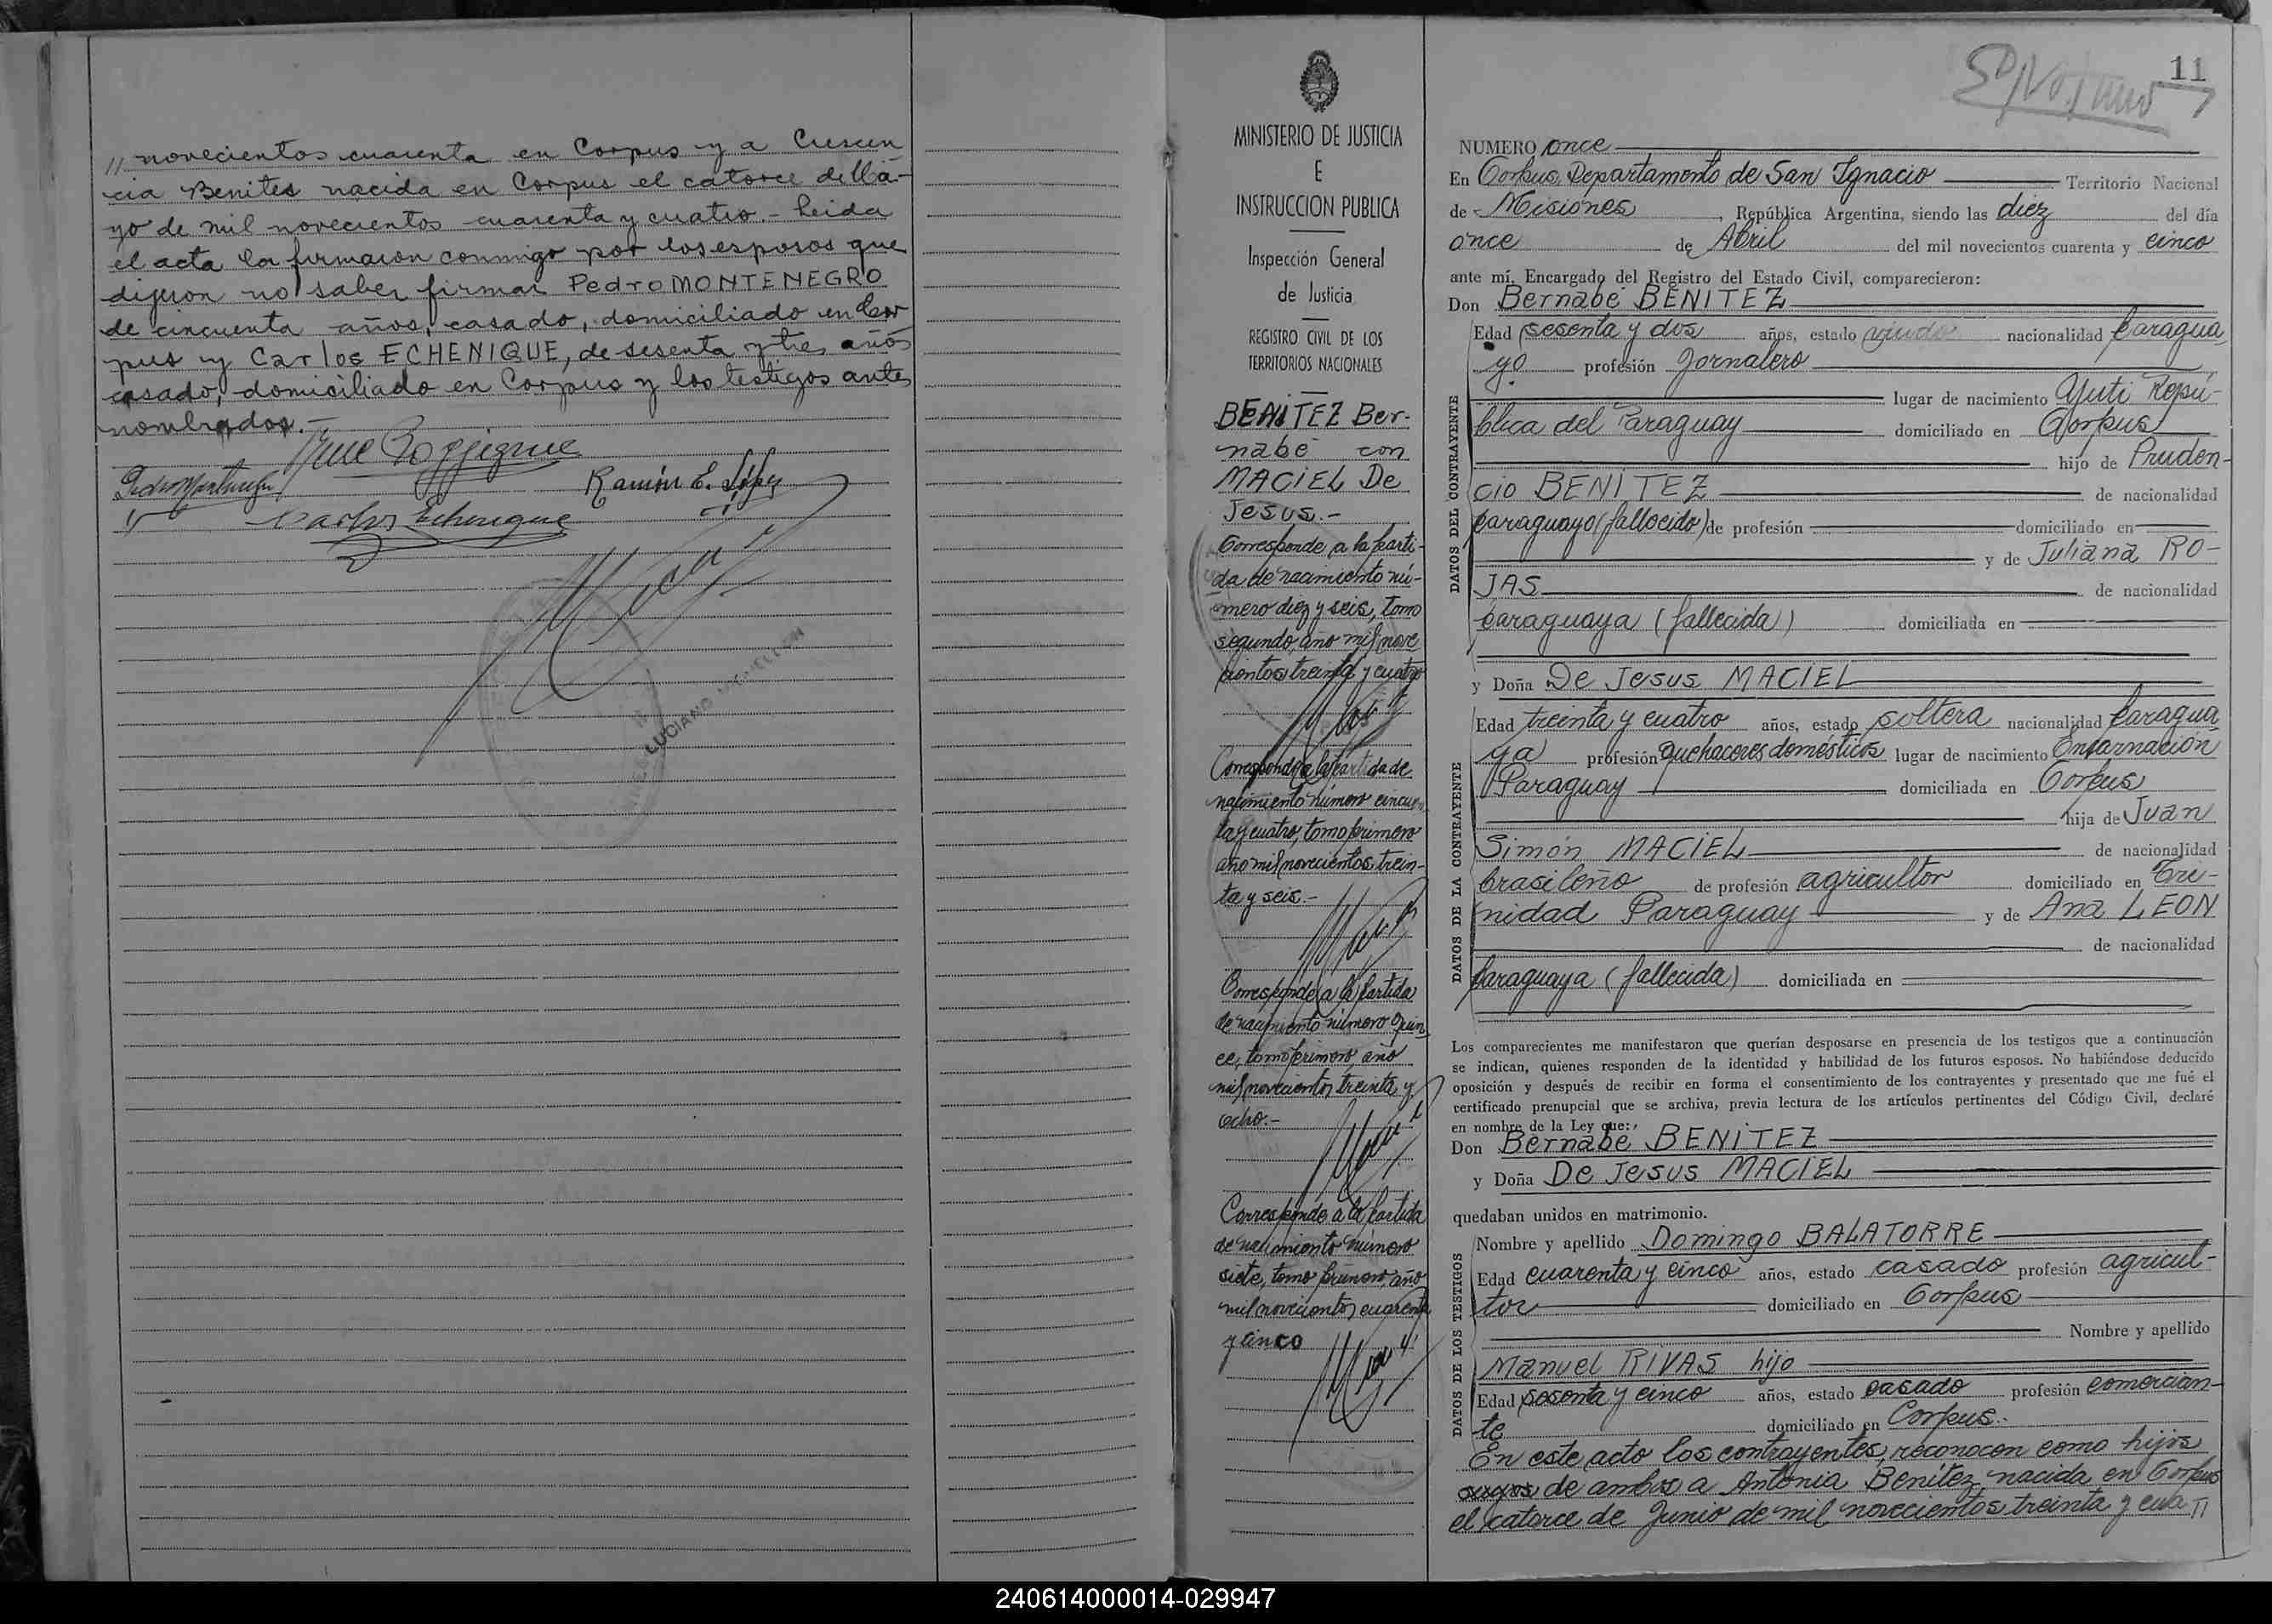 // novecientos cuarenta en Corpus y a Crescen
cia Benites nacida en Corpus el catorce de Ma-
yo de mil novecientos cuarenta y cuatro.- Leida
el acta la firmaron conmigo por los esposos que
dijeron no saber firmar Pedro MONTENEGRO
de cincuenta años, casado, domiciliado en Cor
pus y Carlos ECHENIQUE, de sesenta y tres años
casado, domiciliado en Corpus y los testigos antes
nombrados.-
Ramón E.
Carlos Echenique
LUCIANO
MINISTERIO DE JUSTICIA
E
INSTRUCCION PUBLICA
Inspección General
de Justicia
REGISTRO CIVIL DE LOS
TERRITORIOS NACIONALES
BENITEZ Ber-
nabé con
MACIEL De
Jesus.-
Corresponde a la parti-
da de nacimiento nú-
mero diez y seis, tomo
segundo, año mil nove
cientos treinta y cuatro
Corresponde a la partida de
nacimiento número cincuen
ta y cuatro, tomo primero
año mil novecientos trein-
ta y seis.-
Corresponde a la partida
de nacimiento número quin
ce, tomo primero año
mil novecientos treinta y
ocho.-
Corresponde a la partida
de nacimiento número
siete, tomo primero, año
mil novecientos cuarenta
y cinco
11
NUMERO once
En Corpus, Departamento de San Ignacio Territorio Nacional
de Misiones, República Argentina, siendo las diez del día
once de Abril del mil novecientos cuarenta y cinco
ante mí, Encargado del Registro del Estado Civil, comparecieron:
Don Bernabé BENITEZ
DATOS DEL CONTRAYENTE
Edad sesenta y dos años, estado viudo nacionalidad paragua
yo profesión jornalero
lugar de nacimiento Yuti Repú-
blica del Paraguay domiciliado en Corpus
hijo de Pruden-
cio BENITEZ de nacionalidad
paraguayo (fallecido) de profesión domiciliado en
y de Juliana RO-
JAS de nacionalidad
paraguaya (fallecida) domiciliada en
y Doña De Jesus MACIEL
DATOS DE LA CONTRAYENTE
Edad treinta y cuatro años, estado soltera nacionalidad paragua
ya profesión quehaceres domésticos lugar de nacimiento Encarnación
Paraguay domiciliada en Corpus
hija de Juan
Simón MACIEL de nacionalidad
brasileño de profesión agricultor domiciliado en Tri-
nidad Paraguay y de Ana LEON
de nacionalidad
paraguaya (fallecida) domiciliada en
Los comparecientes me manifestaron que querían desposarse en presencia de los testigos que a continuación
se indican, quienes responden de la identidad y habilidad de los futuros esposos. No habiéndose deducido
oposición y después de recibir en forma el consentimiento de los contrayentes y presentado que me fué el
certificado prenupcial que se archiva, previa lectura de los artículos pertinentes del Código Civil, declaré
en nombre de la Ley que:
Don Bernabé BENITEZ
y Doña De Jesus MACIEL
quedaban unidos en matrimonio.
DATOS DE LOS TESTIGOS
Nombre y apellido Domingo BALATORRE
Edad cuarenta y cinco años, estado casado profesión agricul-
tor domiciliado en Corpus
Nombre y apellido
Manuel RIVAS hijo
Edad sesenta y cinco años, estado casado profesión comercian-
te domiciliado en Corpus.
En este acto los contrayentes, reconocen como hijos
de ambos a Antonia Benítez nacida en Corpus
el catorce de Junio de mil novecientos treinta y cua //
240614000014-029947